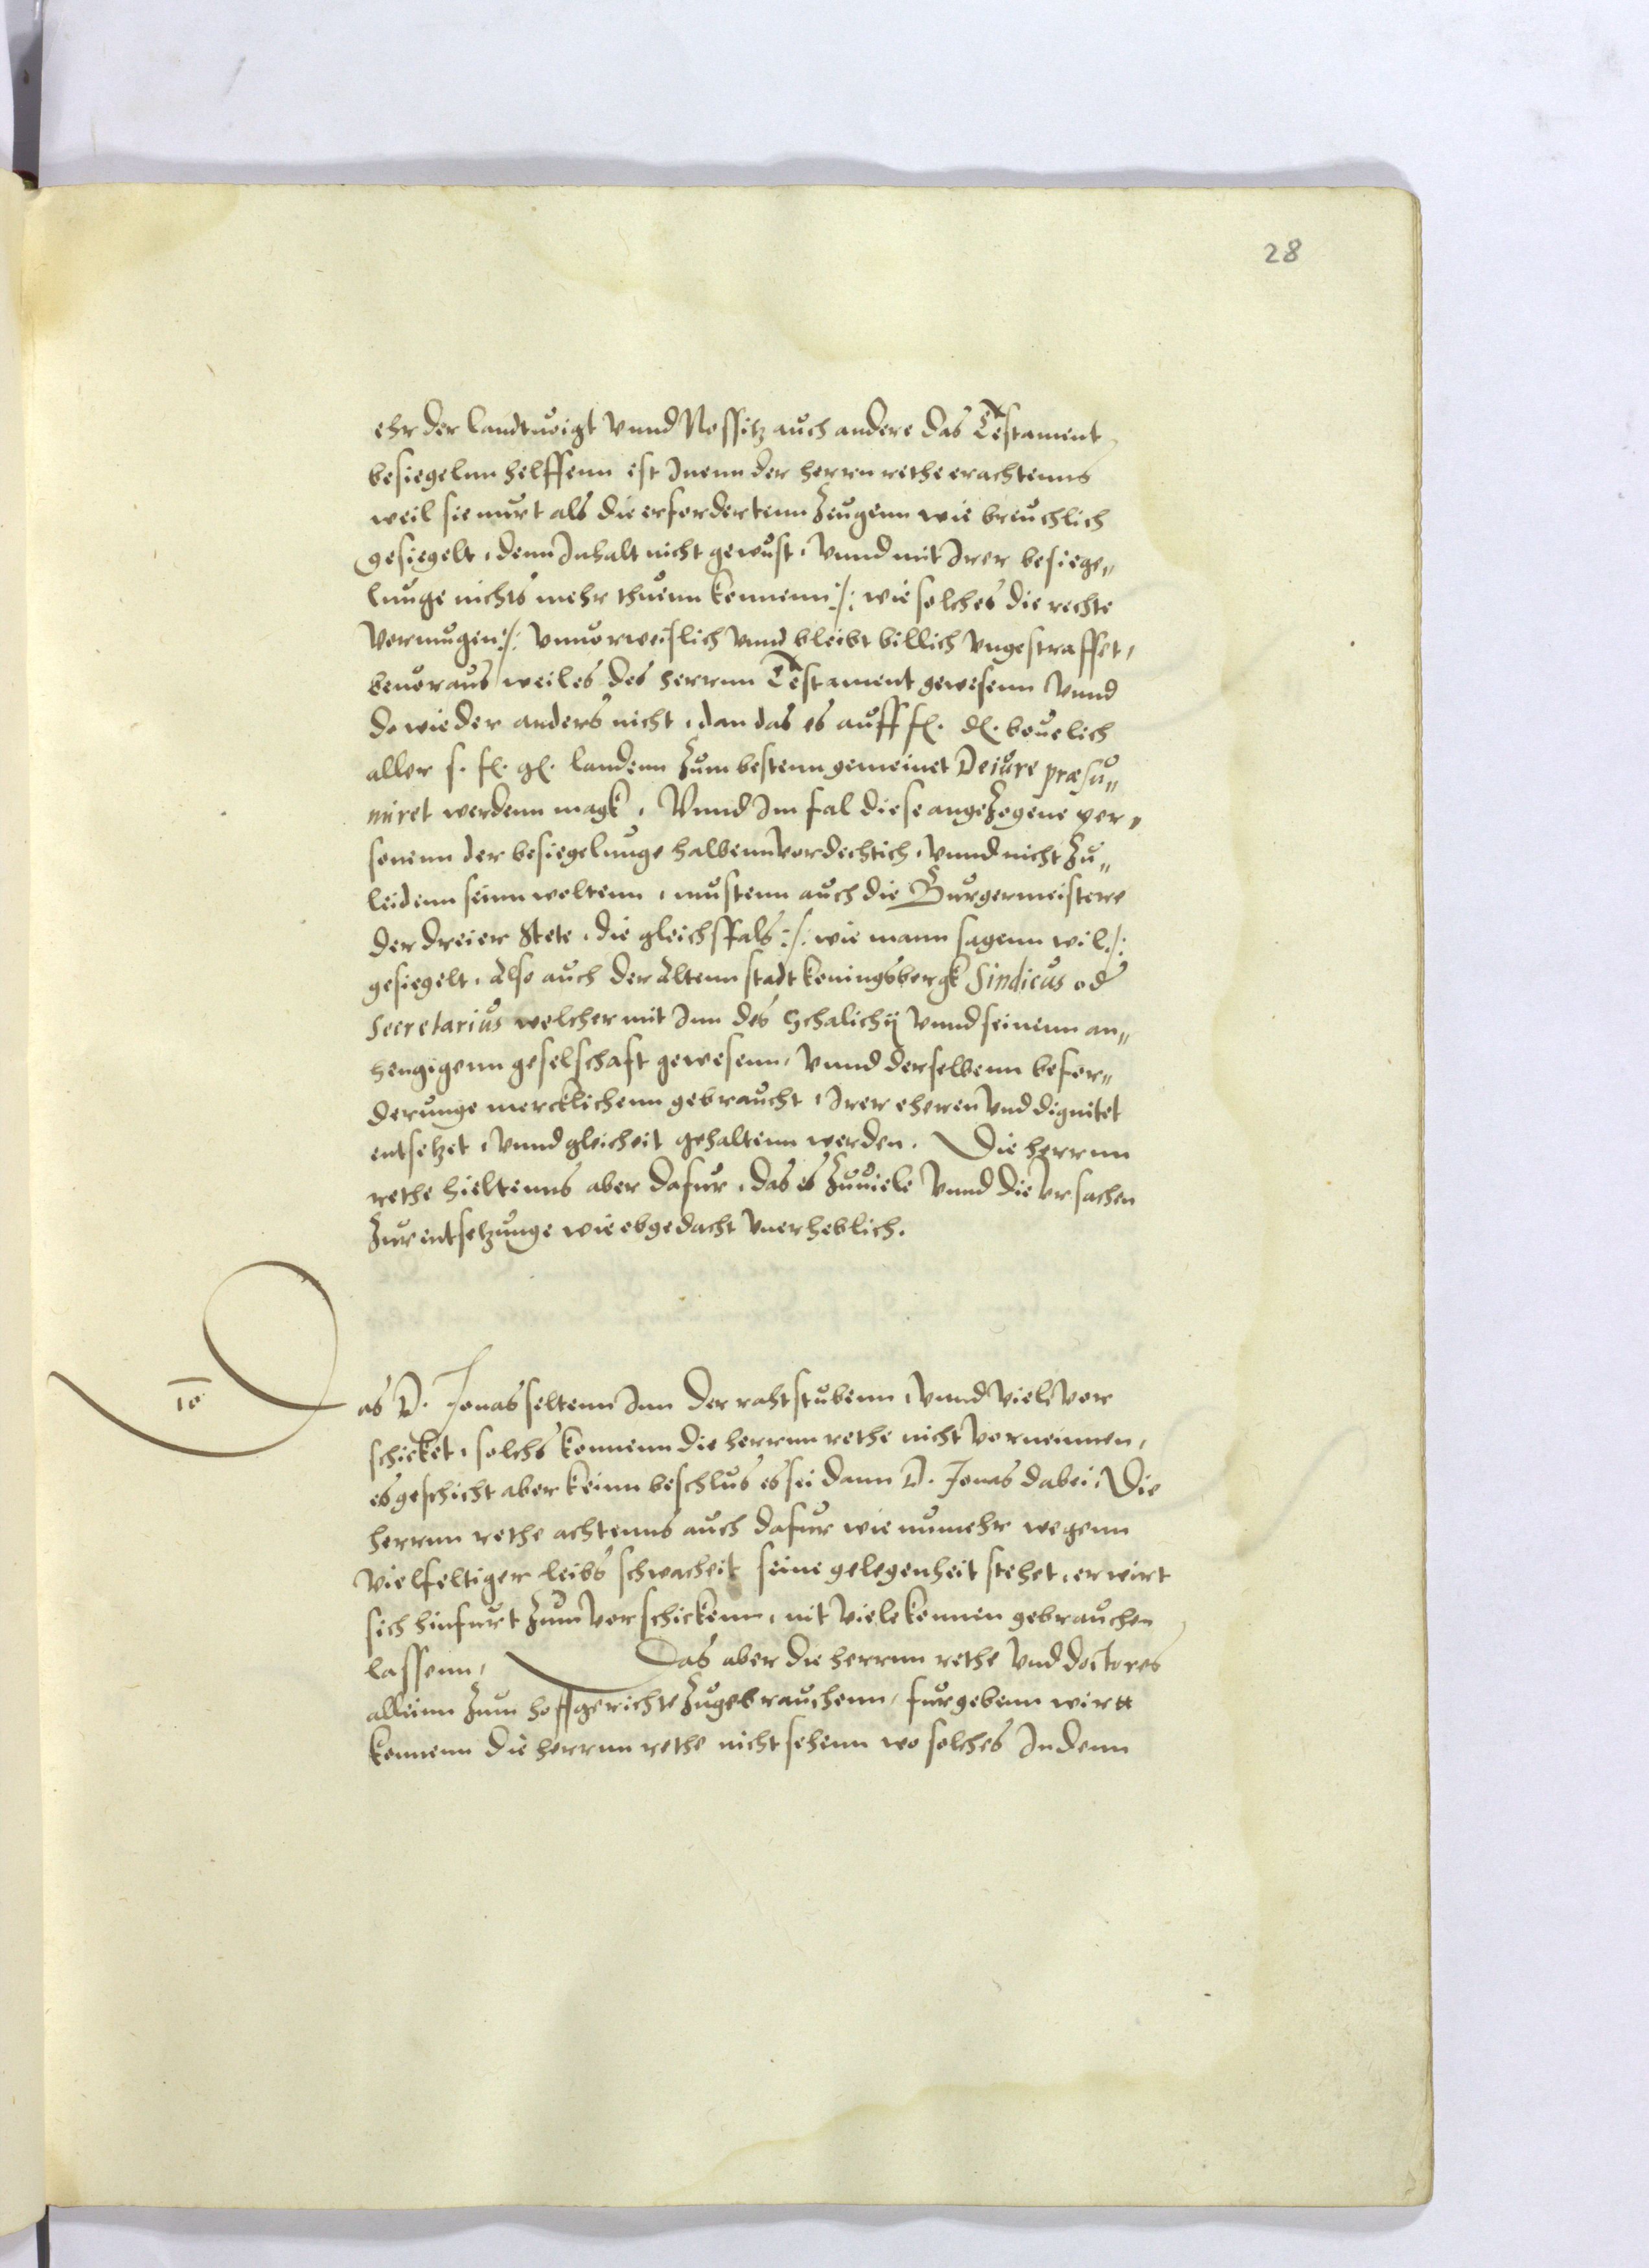 28
ehr der landtuoigt vnnd Nossitz auch andere das Testament
besiegelnn helffenn ist Inenn der herrn rethe erachtenns
weil sie nurt als die erfordertenn Zeugenn wie breuchlich
gesiegelt, denn Inhalt nicht gewust, vnnd mit Irer besiege„
lunge nichts mehr thuenn kennenn :/: wie solches die rechte
vermugen :/: vnuorweislich vnnd bleibt billich vngestraffet,
beuoraus weil es des herrnn Testament gewesenn vnnd
do wieder anders nicht, dan das es auff f. d. beuelich
aller s. f. g. landenn zum bestenn gemeinet De iure præsu„
miret werdenn magk, Vnnd Im fal diese angezogene per„
sonenn der besiegelunge halbenn vordechtich, vnnd nicht zu„
leidenn seinn woltenn, mustenn auch die Burgermeistere
der dreier Stete, die gleichffals :/: wie mann sagenn wil :/:
gesiegelt, Also auch der Altenn stadt koningsbergk Sindicus od
Secretarius welcher mit Inn des Schalichij vnnd seinenn an„
hengigenn geselschaft gewesenn, vnnd derselbenn befor„
derunge mercklichenn gebraucht, Irer eheren vnd dignitet
entsetzet, vnnd gleicheit gehaltenn werden. Die herrnn
rethe hieltenns aber dafur, das es zuuiele vnnd die vrsachen
zur entsetzunge wie obgedacht vnerheblich.
10
Das D. Jonas seltenn Inn der rahtstubenn, vnnd viel vor
schicket, solchs konnenn die herrnn rethe nicht vorneinnen,
es geschicht aber keinn beschlus es sei dann D. Jonas dabei, Die
herrnn rethe achtenns auch dafur wie numehr wegenn
vielfeltiger leibs schwacheit seine gelegenheit stehet, er wirt
sich hinfurt zum vorschickenn, nit viele konnen gebrauchen
lassenn, Das aber die herrnn rethe vnd doctores
alleinn zum hoffgerichte zugebrauchenn, furgebenn wirtt
konnenn die herrnn rethe nicht sehenn wo solches In denn